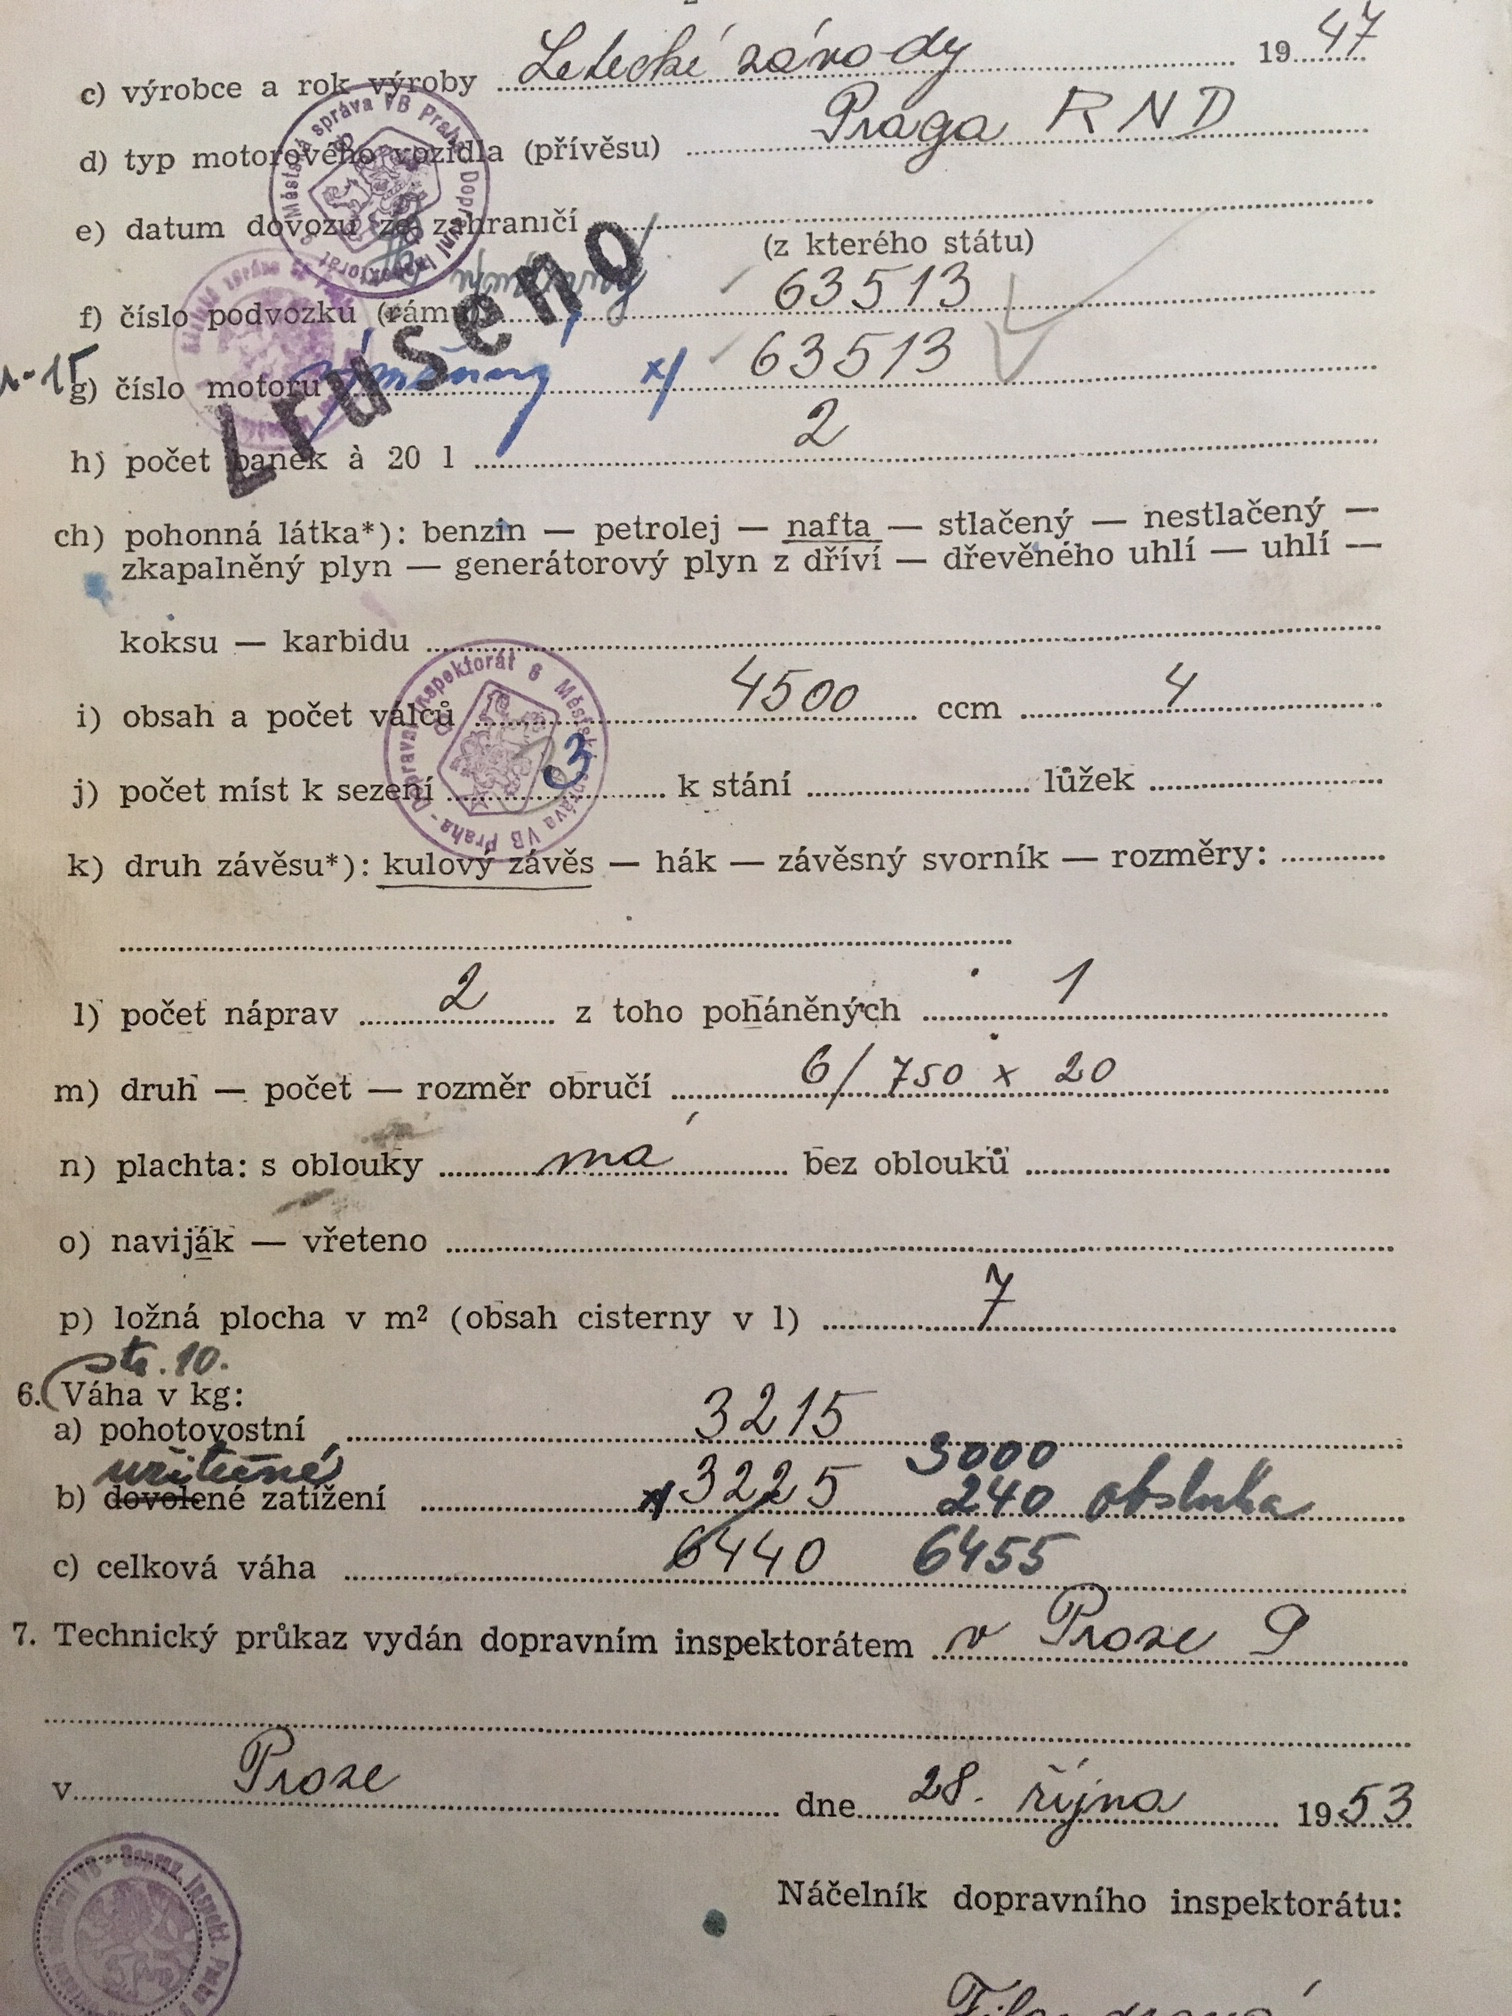 c) výrobce a rok výroby Letecké závody 19 47
d) typ motorového vozidla (přívěsu) Praga RND
e) datum dovozu ze zahraničí
(z kterého státu)
f) číslo podvozku (rámu) 63513
g) číslo motoru x) 63513
Zrušeno
h) počet baněk à 20 l 2
ch) pohonná látka*): benzin — petrolej — nafta — stlačený — nestlačený —
zkapalněný plyn — generátorový plyn z dříví — dřevěného uhlí — uhlí —
koksu — karbidu
i) obsah a počet válců 4500 ccm 4
j) počet míst k sezení 3 k stání lůžek
k) druh závěsu*): kulový závěs — hák — závěsný svorník — rozměry:
l) počet náprav 2 z toho poháněných 1
m) druh — počet — rozměr obručí 6/ 750 x 20
n) plachta: s oblouky má bez oblouků
o) naviják — vřeteno
p) ložná plocha v m² (obsah cisterny v l) 7
str. 10.
6. Váha v kg:
a) pohotovostní 3215
užitečné 3000
b) dovolené zatížení x) 3225 240 obsluha
c) celková váha 6440 6455
7. Technický průkaz vydán dopravním inspektorátem v Praze 9
v Praze dne 28. října 1953
Náčelník dopravního inspektorátu: